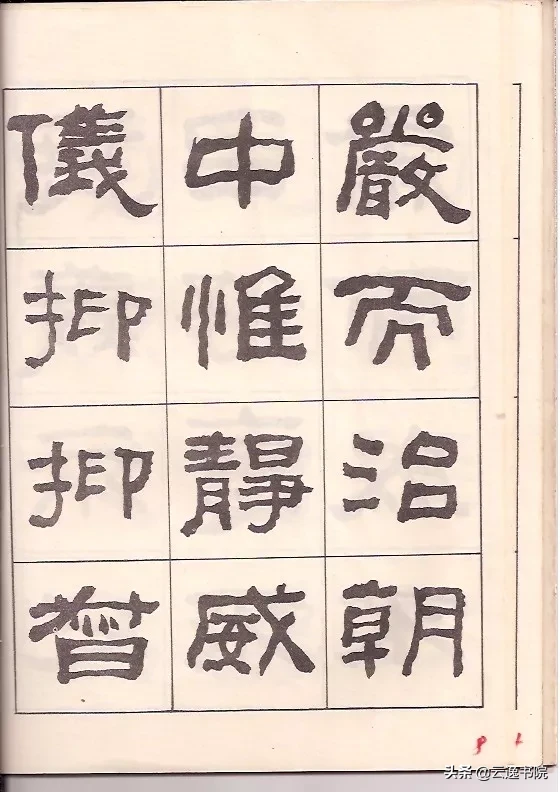 嚴而治朝
中惟靜威
儀抑抑督
头条 @云逸书院